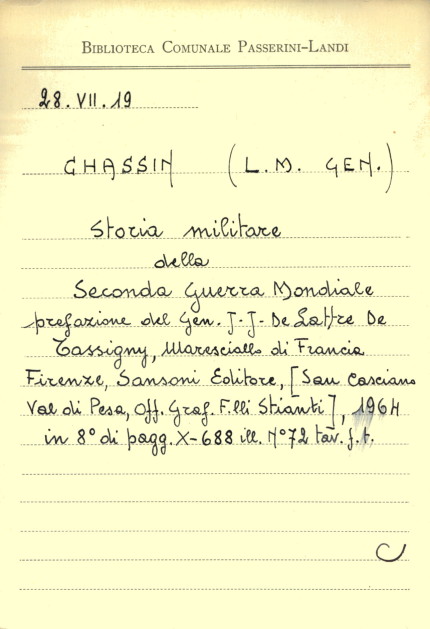 BIBLIOTECA COMUNALE PASSERINI-LANDI
28.VII.19
CHASSIN (L.M. GEN.)
Storia militare
della
Seconda Guerra Mondiale
prefazione del Gen. J-J- De Lattre De
Tassigny, Maresciallo di Francia
Firenze, Sansoni Editore, [San Casciano
Val di Pesa, Off. Graf. F.lli Stianti], 1964
in 8° di pagg. X-688 ill. N°72 tav. f.t.
C